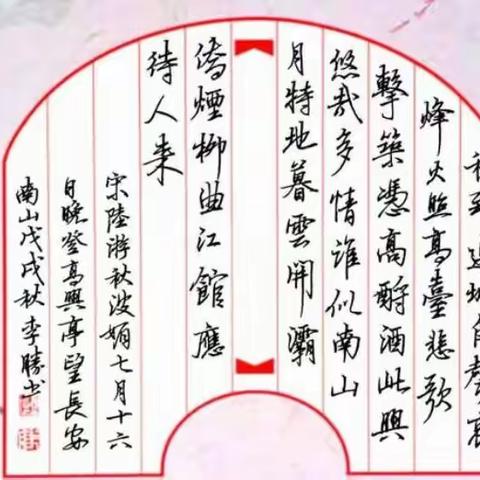 到邊城角聲哀
烽火照高臺悲歌
擊築憑高酹酒此興
悠哉多情誰似南山
月特地暮雲開灞
橋煙柳曲江館應
待人來
宋陸游秋波媚七月十六
日晚登高興亭望長安
南山戊戌秋李勝书